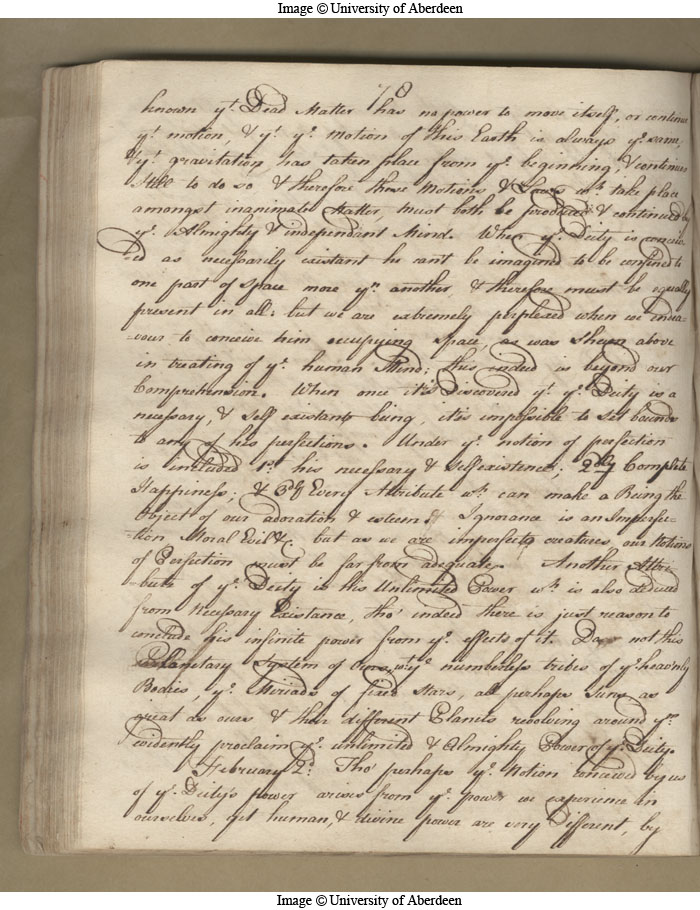 Image © University of Aberdeen
78
known yt. Dead Matter has no power to move itself, or continue
yt. motion, & yt. ye. Motion of this Earth is always ye. same,
& yt. gravitation has taken place from ye. beginning, & continues
still to do so & therefore these Motions & Laws wch. take place
amongst inanimate Matter, must both be produced & continued by
ye. Almighty & independent Mind. When ye. Deity is concie-
-ved as necessarily existant he can't be imagined to be confined to
one part of space more yn. another & therefore must be equally
present in all: but we are extremely perplexed when we endea-
-vour to conceive him occupying space, as was shewn above
in treating of ye. human Mind; this indeed is beyond our
Comprehension. When once it's Discovered yt. ye. Deity is a
necessary, & self existant being, it's impossible to set bounds
to any of his perfections. Under ye. notion of perfection
is included 1o. his necessary & self existence; 2dly Complete
Happiness; & 3dly Every Attribute wch. can make a Being the
Object of our adoration & esteem. Ignorance is an Imperfec-
-tion Moral Evil &c. but as we are imperfect creatures our Notions
of Perfection must be far from adequate. Another Attri-
-bute of ye. Deity is his Unlimited Power wch. is also deduced
from Necessary Existance, tho' indeed there is just reason to
conclude his infinite power from ye. effects of it. Does not this
Planetary System of Ours, wt. ye. numberless tribes of ye. heavenly
Bodies, ye. Miriads of fixed Stars, all perhaps Suns as
great as ours & their different Planets revolving around ym.
evidently proclaim ye. unlimited & Almighty Power of ye. Deity.
February 2d. Tho' perhaps ye. Notion conceived by us
of ye. Deity's power arises from ye. power we experience in
ourselves, yet human, & divine power are very Different, by
Image © University of Aberdeen